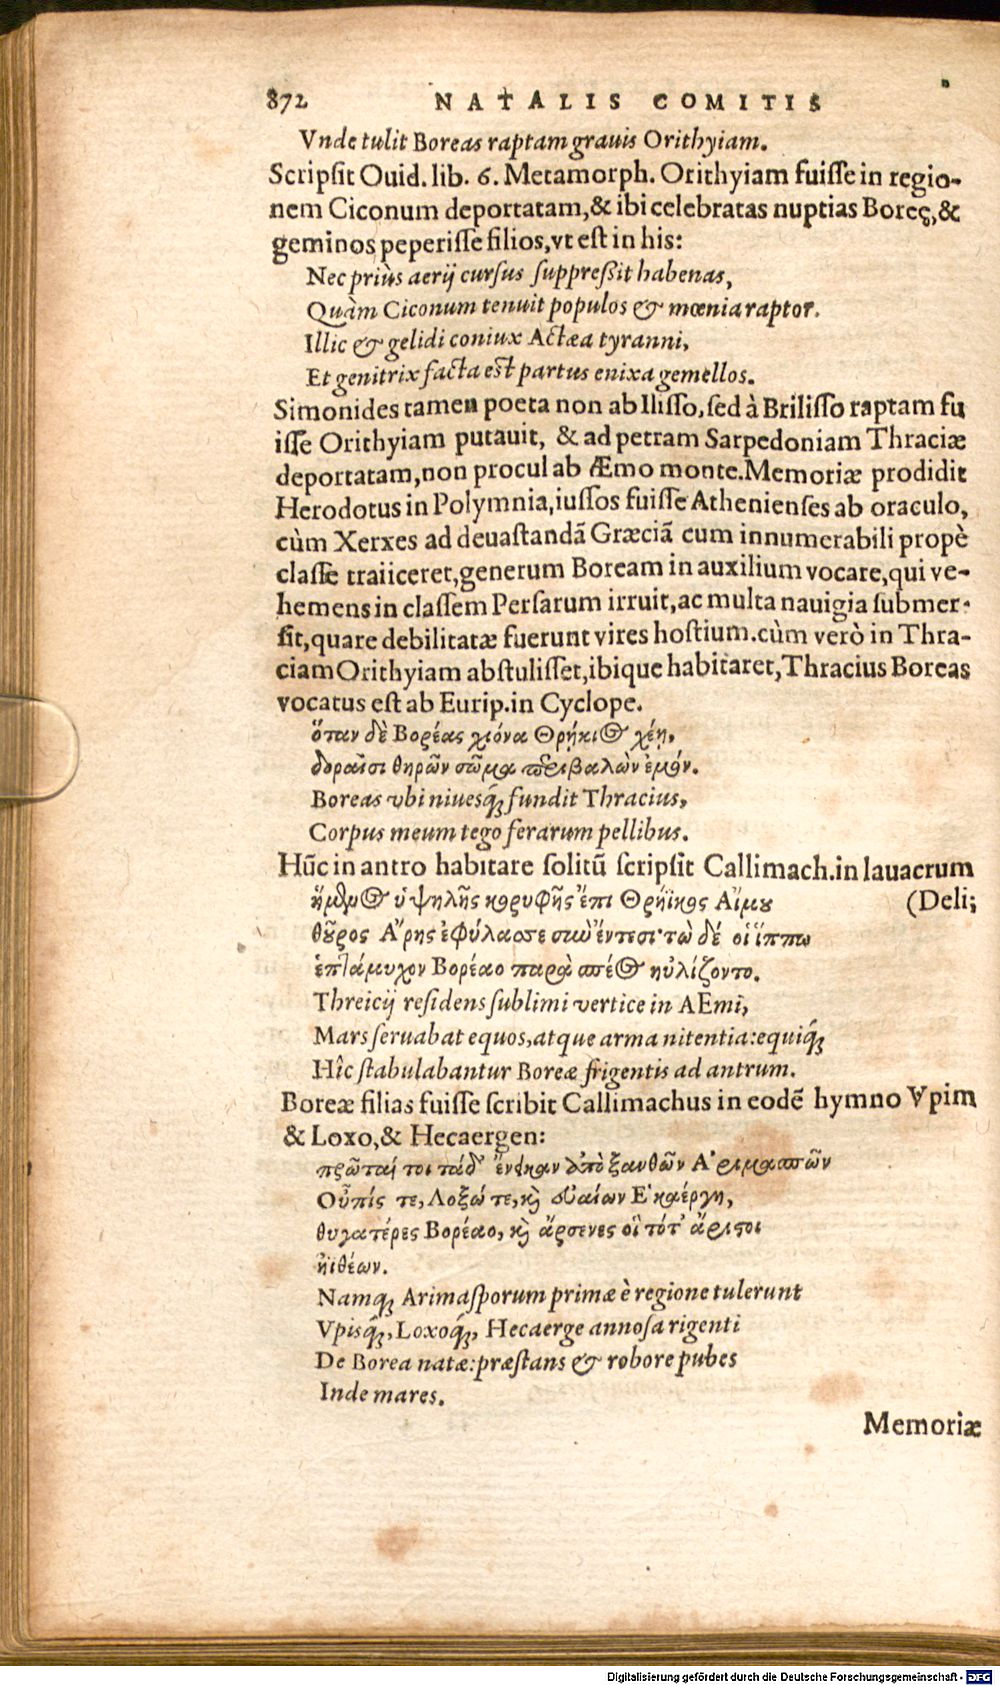 872 NATALIS COMITIS
Vnde tulit Boreas raptam grauis Orithyiam.
Scripsit Ouid. lib. 6. Metamorph. Orithyiam fuiſſe in regio-
nem Ciconum deportatam, & ibi celebratas nuptias Boreę, &
geminos peperiſſe filios, vt eſt in his:
Nec priùs aerij curſus ſuppreßit habenas,
Quàm Ciconum tenuit populos & mœnia raptor.
Illic & gelidi coniux Actæa tyranni,
Et genitrix facta eſt partus enixa gemellos.
Simonides tamen poeta non ab Iliſſo, ſed à Briliſſo raptam fu
iſſe Orithyiam putauit, & ad petram Sarpedoniam Thraciæ
deportatam, non procul ab Æmo monte. Memoriæ prodidit
Herodotus in Polymnia, iuſſos fuiſſe Athenienſes ab oraculo,
cùm Xerxes ad deuaſtandã Græciã cum innumerabili propè
claſſe traiiceret, generum Boream in auxilium vocare, qui ve-
hemens in claſſem Perſarum irruit, ac multa nauigia ſubmer-
ſit, quare debilitatæ fuerunt vires hoſtium. cùm verò in Thra-
ciam Orithyiam abſtuliſſet, ibique habitaret, Thracius Boreas
vocatus eſt ab Eurip. in Cyclope.
ὅταν δὲ Βορέας χιόνα Θρῄκιος χέῃ,
δοραῖσι θηρῶν σῶμα περιβαλὼν ἐμόν.
Boreas vbi niuesq́; fundit Thracius,
Corpus meum tego ferarum pellibus.
Hũc in antro habitare ſolitũ ſcripſit Callimach. in lauacrum
(Deli;
ἥμενος ὑψηλῆς κορυφῆς ἔπι Θρήϊκος Αἵμου
θοῦρος Ἄρης ἐφύλασσε σὺν ἔντεσι· τὼ δέ οἱ ἵππω
ἑπτάμυχον Βορέαο παρὰ σπέος ηὐλίζοντο.
Threicij reſidens ſublimi vertice in AEmi,
Mars ſeruabat equos, atque arma nitentia: equiq́;
Hîc ſtabulabantur Boreæ frigentis ad antrum.
Boreæ filias fuiſſe ſcribit Callimachus in eodẽ hymno Vpim
& Loxo, & Hecaergen:
πρῶταί τοι τάδ' ἔνεικαν ἀπὸ ξανθῶν Ἀριμασπῶν
Οὖπίς τε, Λοξώ τε, καὶ εὐαίων Ἑκαέργη,
θυγατέρες Βορέαο, καὶ ἄρσενες οἳ τότ' ἄριστοι
ἠϊθέων.
Namq; Arimaſporum primæ è regione tulerunt
Vpisq́;, Loxoq́;, Hecaerge annoſa rigenti
De Borea natæ: præſtans & robore pubes
Inde mares.
Memoriæ
Digitalisierung gefördert durch die Deutsche Forschungsgemeinschaft - DFG